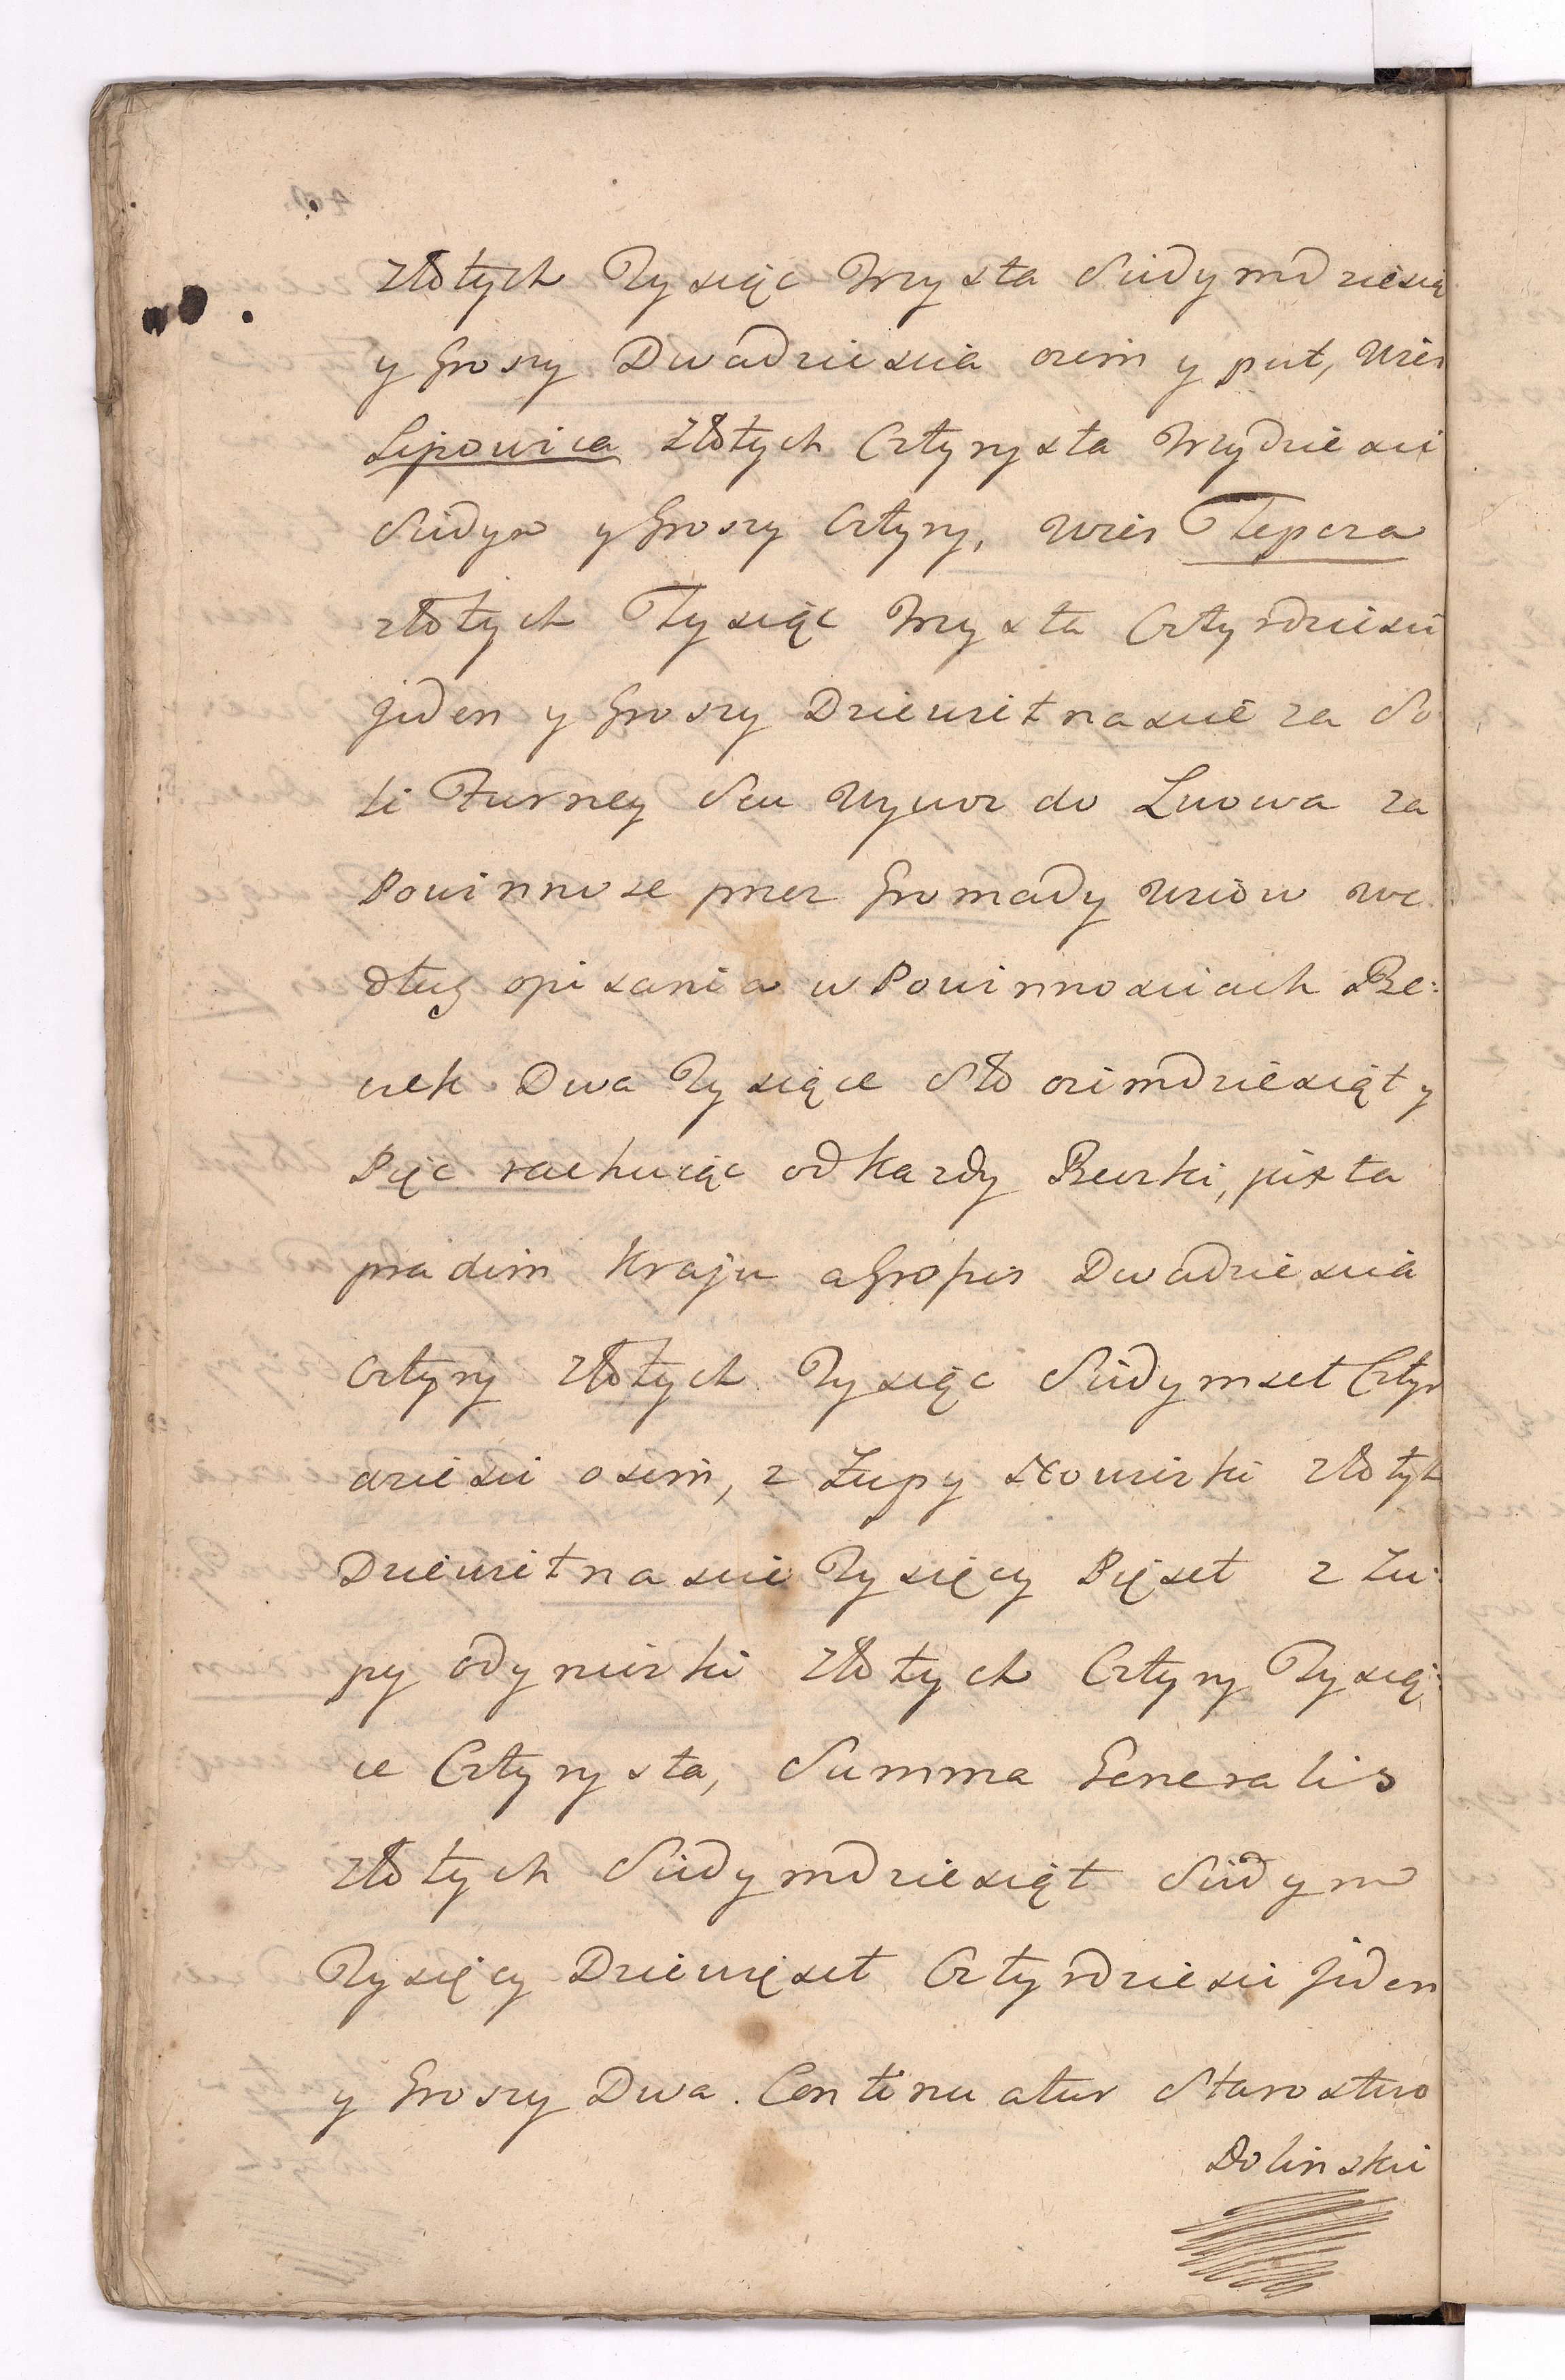 złotych Tysiąc Trzysta Siedymdziesią
y Groszy Dwadziescia ozim y puł, Wies
Lipowica złotych Cztyrysta Trzydziesci
Siedym y Groszy Cztyry, Wies Tepcza
złotych Tysiąc Trzysta Cztyrdziesci
jeden y Groszy Dziewietnascie za So
li Furney Seu Wywoz do Lwowa za
Powinnosc przez Gromady Wsiow we
dług opisania w Powinnosciach Be:
czek Dwa Tysiące Sto ozimdziesiąt y
Pięc rachuiąc od kazdy Beczki, juxta
pra dim Kraju a Groszes Dwadziescia
Cztyry złotych Tysiąc Siedymset Cztyr
dziesci osim, z Żupy Nowicki złotyh
Dziewietnascie Tysięcy Pięset z Żu:
py odynicki złotych Cztyry Tysią:
ce Cztyrysta, Summa Generalis
złotych Siedymdziesiąt Siedym
Tysięcy Dziewięset Cztyrdziesci jeden
y Groszy Dwa. Continuatur Starostwo
Dolinskii